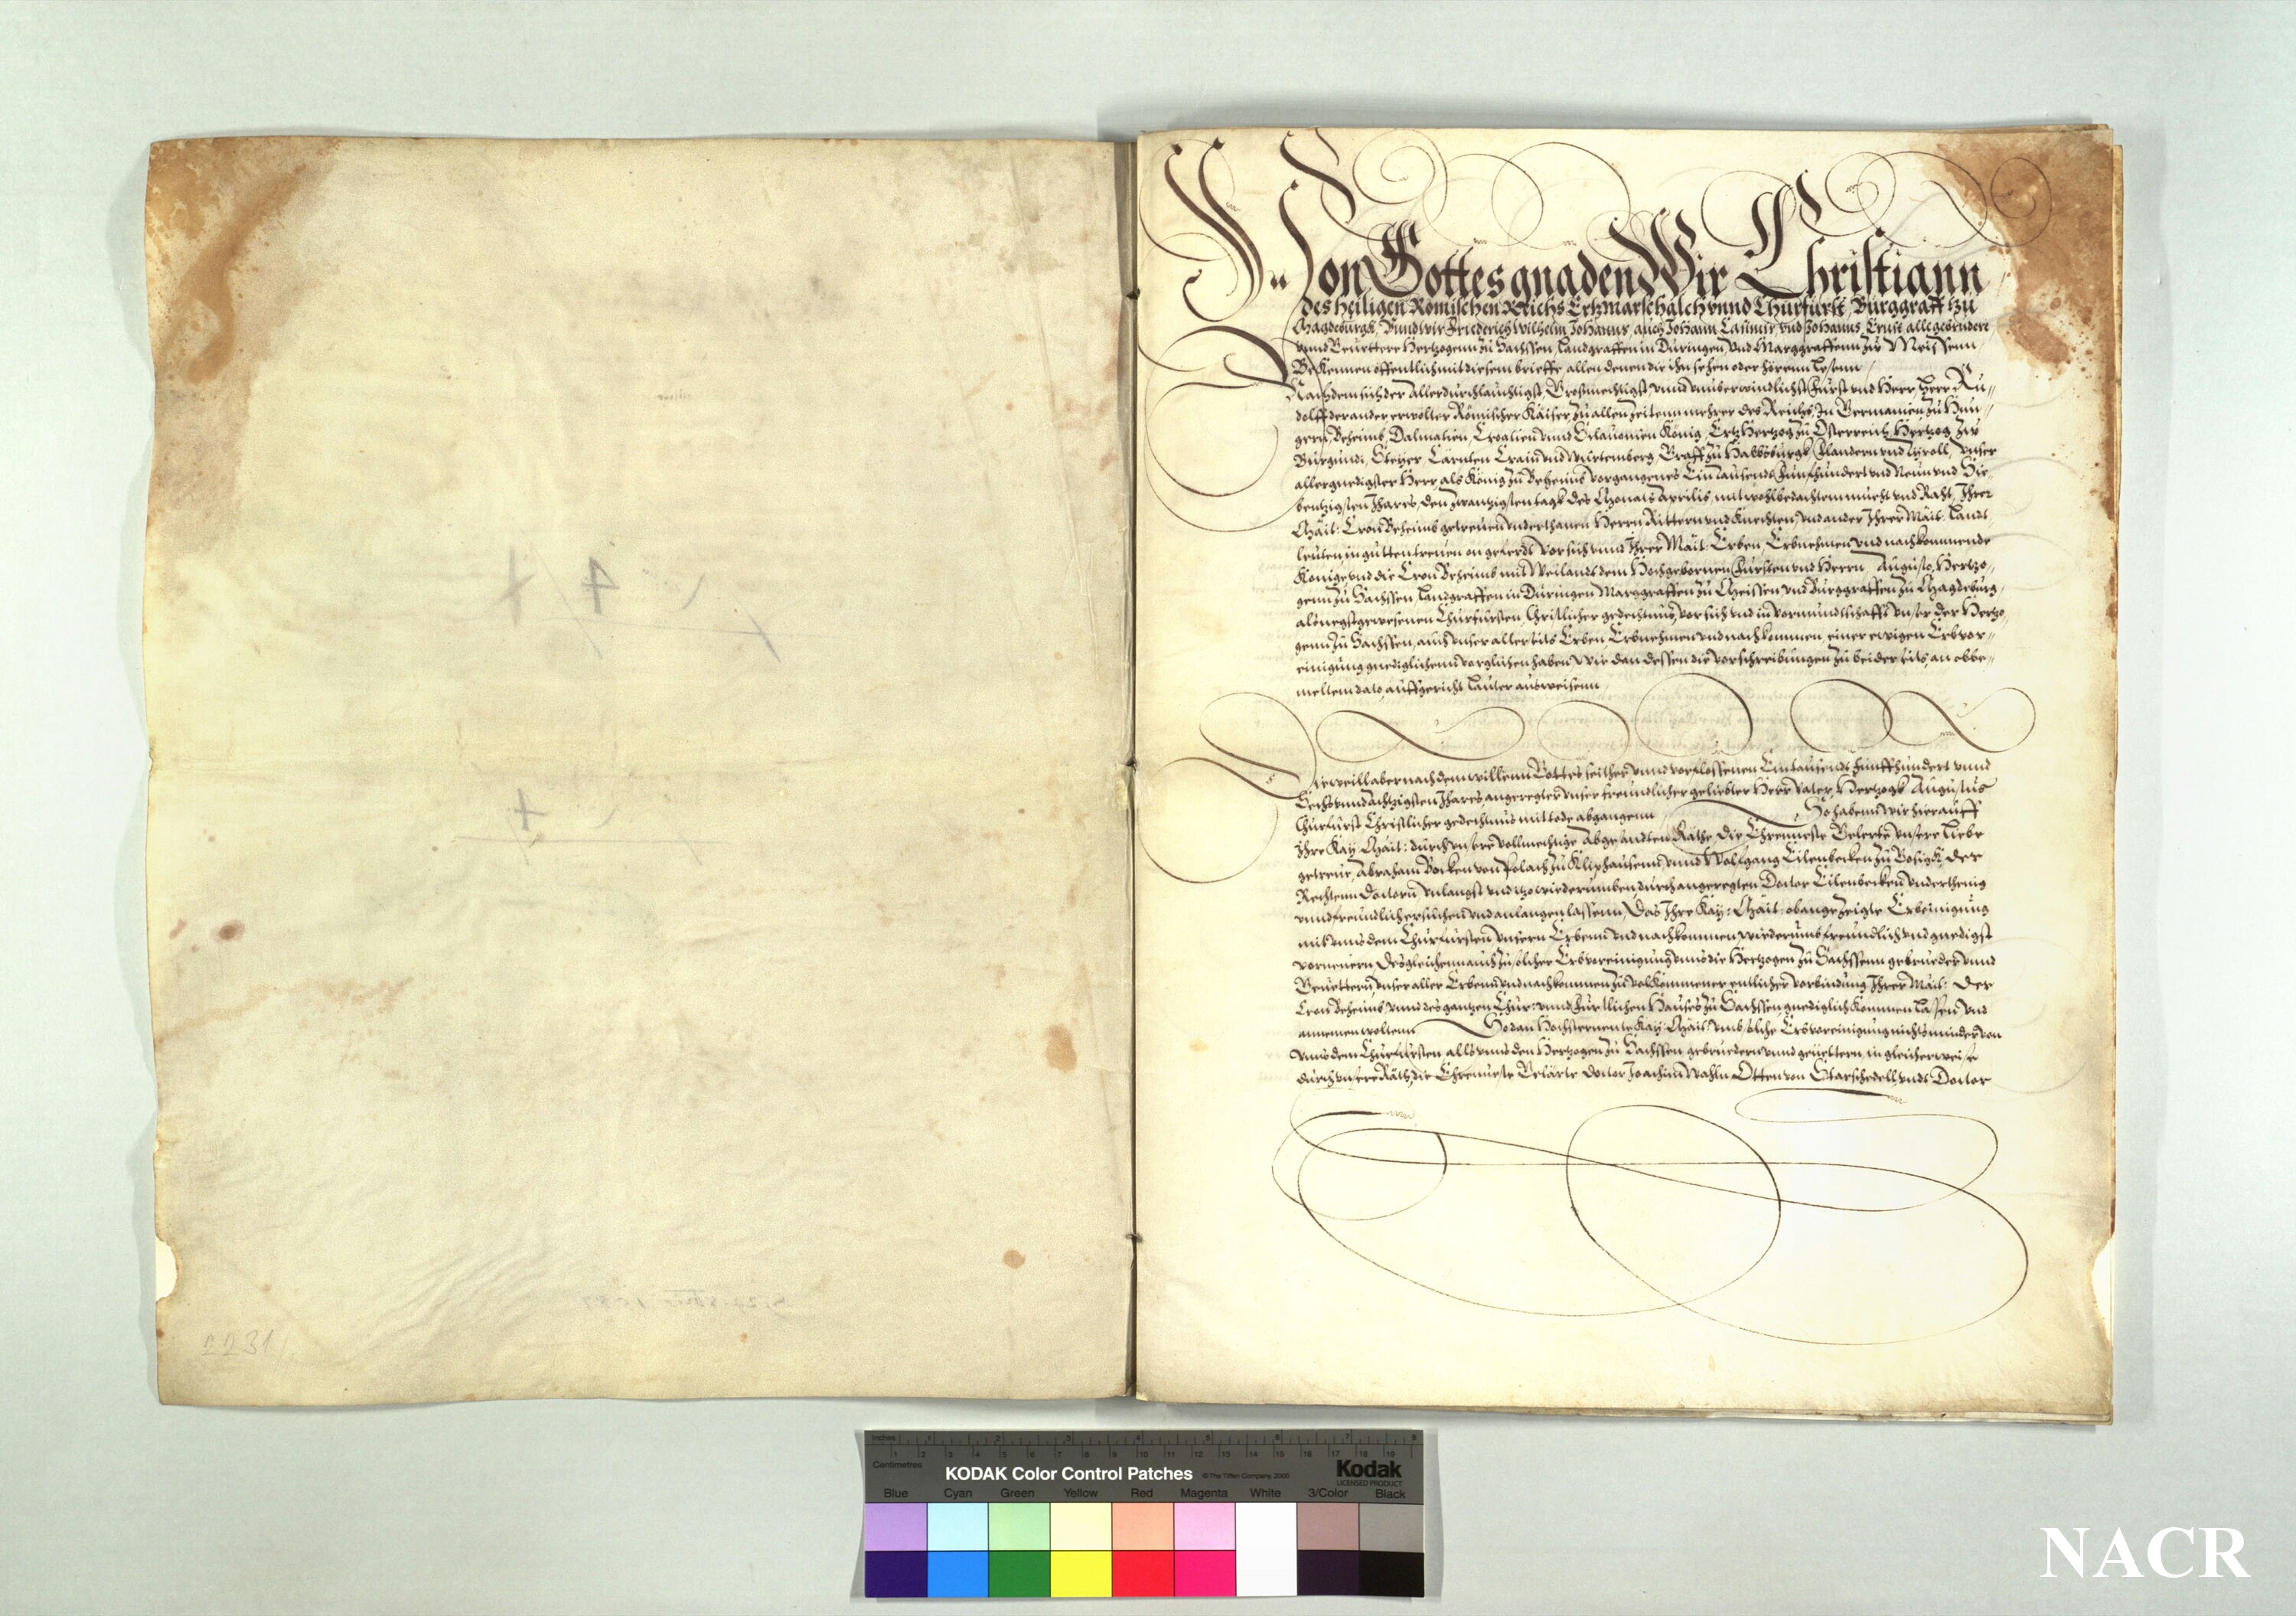 Von Gottes gnaden Wir Christiann
des Heiligen Römischen Reichs Ertzmarschalch vnnd Churfürst, Burggraff tzu
Magdeburgk, Vnnd wir Friederich Wilhelm, Johanns, auch Johann Casimir vnd Johanns Ernst alle gebrudere
vnnd Geuettere Hertzogenn zu Sachssen, Landgraffen in Düringen Vnd Marggraffenn zu Meissenn
Bekennen offentlich mit diesem brieffe, allen denen die ihn sehen oder hörenn lesenn
Nachdem sich der Allerdurchlauchtigst, Grosmechtigst, vnnd vnuberwindlichst Furst vnd Herr, Herr Ru-
dolff der ander erwölter Römischer Kaiser, zu allen zeitenn mehrer des Reichs, In Germanien, zu Hun-
gern, Beheimb, Dalmatien, Croatien vnnd Sclauonien König, Ertz Hertzog zu Osterreich, Hertzog zu
Burgundi, Steyer, Cärnten, Crain vnd Wurtemberg, Graff zu Habsburgk, Flandern vnd Tyroll, vnser
allergnedigster Herr, als König zu Beheimb vorganges Ein Tausendt Funfhundert vnd Neun vnd Sie-
bentzigsten Jhares, den zwantzigsten tagk des Monats Aprilis, mit wohlbedachtem mueth vnd Raht, Ihrer
Mait: Cron Beheimb getreuen vnderthanen Herrn Rittern vnd Knechten, vnd ander Ihrer Mait: Landt
leuten, in gutten treuen on geferdt vor sich vnnd Ihrer Mait: Erben, Erbnehmen vnd nachkommende
Könige, vnd die Cron Beheimb mit Weilandt dem Hochgebornen Fursten vnd Herrn Augusto, Hertzo-
genn zu Sachssen, Landgraffen in Düringen Marggraffen zu Meissen vnd Burggraffen zu Magdeburg,
als negstgewesenen Churfursten Christlicher gedechtnus, vor sich vnd in vormundtschafft vnser der Hertzo
genn zu Sachssen, auch vnser allerseits Erben, Erbnehmen vnd nachkommen, einer ewigen Erbvor-
einigung gnediglichenn vorglichen haben, wie dan dessen die vorschreibungen zu beiderseits, an obbe-
meltem dato, auffgericht lauter ausweisenn
Dieweill aber nach dem willenn Gottes seither vnnd vorflossenen Ein tausendt Funffhundert vnnd
Sechs vnnd achtzigsten Jhares, angeregter vnser freundlicher geliebter Herr Vater, Hertzogk Augustus
Churfurst Christlicher gedechtnus mit tode abgangenn So habenn wir hierauff
Ihre Kay: Mait: durch vnsere vollmechtige Abgesandten Räthe, die Ehrnueste Gelerte vnsere liebe
getreue, Abraham Bocken von Polach zu Kliphausenn, vnnd Wolfgang Eilenbecken zu Gosigk, der
Rechtenn Doctorn, vnlangst vnd itzo wiederumben durch angeregten Doctor Eilenbecken, vnderthenig
vnnd freundlich ersuchen vnd anlangen lassenn, Das Ihre Kay: Mait: obangezeigte Erbeinigung
mit vnns dem Churfursten vnsern Erbenn vnd nachkommen wiederumb freundlich vnd gnedigst
vorneuern, desgleichenn auch zu solcher Erbvoreinigung vnns die Hertzogen zu Sachssenn gebrueder vnnd
Geuettern, vnser aller Erbenn vnd nachkommen zu volkommener entlicher vorbindung Ihrer Mait: Der
Cron Beheimb vnnd des gantzen Chur: vnnd Furstlichen Hauses zu Sachssen, gnediglich kommen lassen vnd
annemen woltenn So dan Hochsternente Kay: Mait: vmb solche Erbvoreinigung nichts minder von
vnns dem Churfursten alls vnns den Hertzogen zu Sachssen gebruedern vnnd geuettern, in gleicher weise
durch vnsere Räth, die Ehrnueste Gelärte Doctor Joachim Wahln, Otten von Starschedell, vndt Doctor
2231
Inches
Centimetres
KODAK Color Control Patches © The Tiffen Company, 2000 Kodak
LICENSED PRODUCT
Blue Cyan Green Yellow Red Magenta White 3/Color Black
NACR